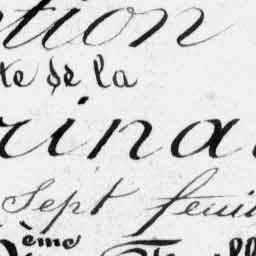 tion
te de la
rina
Sept feuil
ème